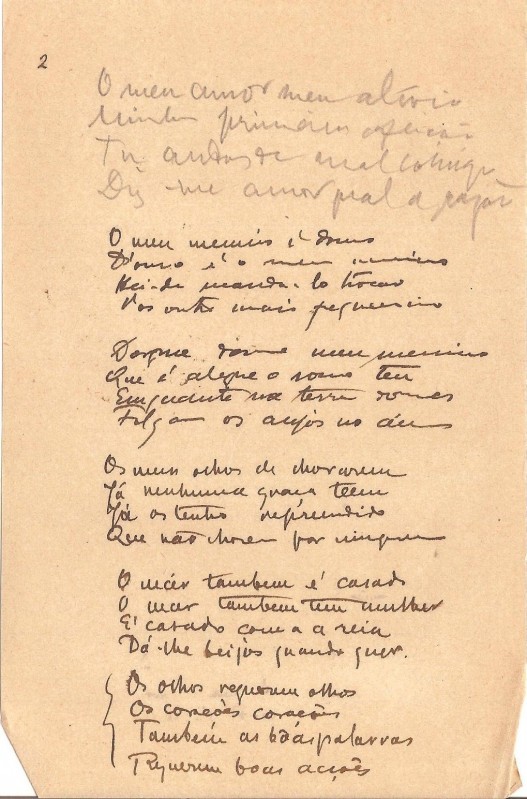 2
O meu amor meu alivio
Minha primeira afeição
Tu andas de mal comigo
Diz-me amor qual a razão
O meu menino é d'ouro
D'ouro é o meu menino
Hei-de manda-lo trocar
Por outro mais pequenino
Dorme dorme meu menino
Que é alegre o sono teu
Emquanto na terra dormes
Folgam os anjos no céu
Os meus olhos de chorarem
Já nenhuma graça teem
Já os tenho reprendido
Que não chorem por ninguem
O már tambem é casado
O mar tambem tem mulher
É casado com a areia
Dá-lhe beijos quando quer.
Os olhos requerem olhos
Os corações corações
Também as boas palavras
Requerem boas acções